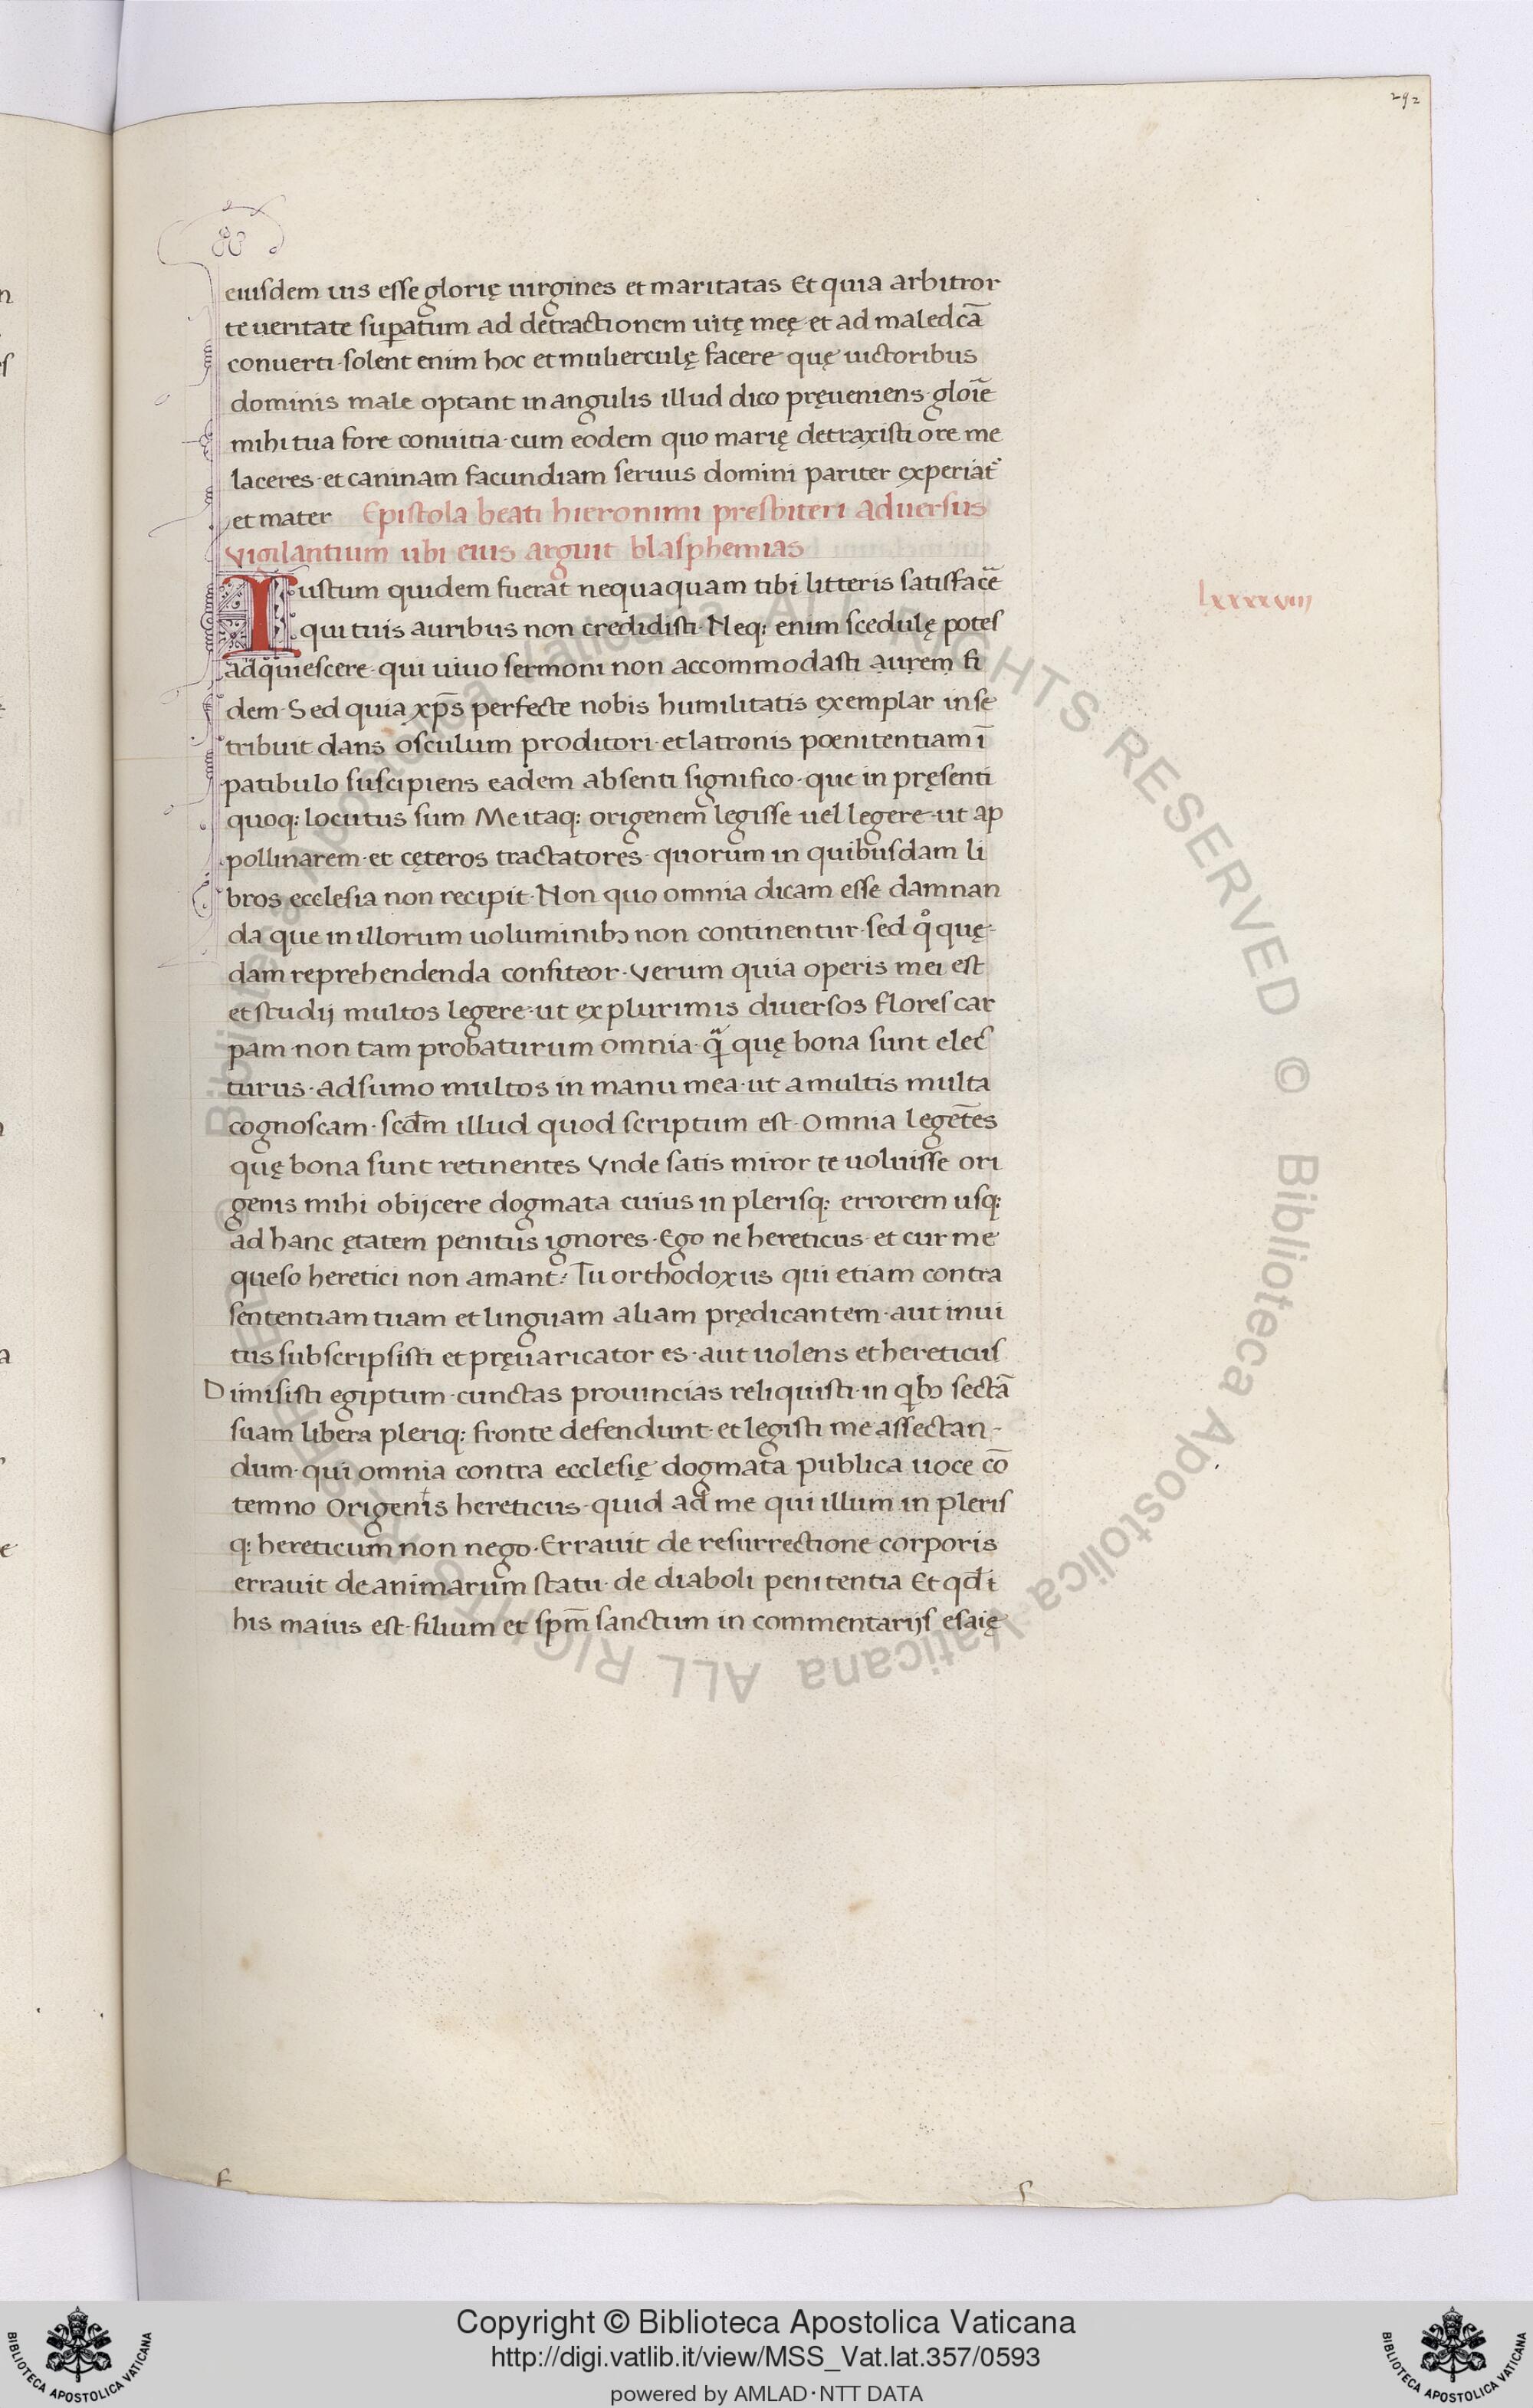 292
eiusdem uis esse glorię uirgines et maritatas Et quia arbitror
te ueritate suꝑatum ad detractionem uitę meę et ad maledcā
conuerti·solent enim hoc et mulierculę facere quę uictoribus
dominis male optant in angulis illud dico pręueniens·gloīe
mihi tua fore conuitia·cum eodem quo marię detraxisti ore me
laceres·et caninam facundiam seruus domini pariter experiat᷑
et mater Epistola beati hieronimi presbiteri aduersus
vigilantium ubi eius arguit blasphemias
Iustum quidem fuerat nequaquam tibi litteris satisfac̄e
lxxxxviii
qui tuis auribus non credidisti·Neq: enim scedulę potes
adquiescere·qui uiuo sermoni non accommodasti aurem fi
dem·Sed quia xp̄s perfecte nobis humilitatis exemplar in se
tribuit dans osculum proditori·et latronis poenitentiam ī
patibulo suscipiens eadem absenti significo·que in pręsenti
quoq: locutus sum Me itaq: origenem legisse uel legere·ut ap
pollinarem·et cęteros tractatores·quorum in quibusdam li
bros ecclesia non recipit·Non quo omnia dicam esse damnan
da que in illorum uoluminibꝫ non continentur·sed qͦ quę-
dam reprehendenda confiteor·Verum quia operis mei est
et studij multos legere·ut ex plurimis diuersos flores car
pam·non tam probaturum omnia·qᷓ quę bona sunt elec
turus·adsumo multos in manu mea·ut a multis multa
cognoscam·scd̄m illud quod scriptum est·omnia legētes
quę bona sunt retinentes Vnde satis miror te uoluisse ori
genis mihi obijcere dogmata cuius in plerisq: errorem usq:
ad hanc ętatem penitus ignores·Ego ne hereticus·et cur me
queso heretici non amant: Tu orthodoxus qui etiam contra
sententiam tuam et linguam aliam prędicantem·aut inui
tus subscripsisti et pręuaricator es·aut uolens et hereticus
Dimisisti egiptum·cunctas prouincias reliquisti·in qͥbꝫ sectā
suam libera pleriq: fronte defendunt·et legisti me assectan-
dum·qui omnia contra ecclesię dogmata publica uoce cō
temno Origenis hereticus·quid ad me qui illum in pleris
q: hereticum non nego·Errauit de resurrectione corporis
errauit de animarum statu·de diaboli penitentia Et qd̄ ī
his maius est·filium et sp̄m sanctum in commentarijs esaię
© Biblioteca Apostolica Vaticana ALL RIGHTS RESERVED © Biblioteca Apostolica Vaticana ALL RIGHTS RESERVED
BIBLIOTECA APOSTOLICA VATICANA
Copyright © Biblioteca Apostolica Vaticana
http://digi.vatlib.it/view/MSS_Vat.lat.357/0593
powered by AMLAD·NTT DATA
BIBLIOTECA APOSTOLICA VATICANA